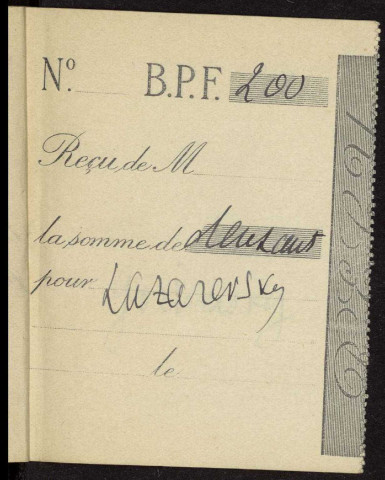 Nº. B.P.F. 200
Reçu, de M
la somme de deux cents
pour Lazarevsky
le